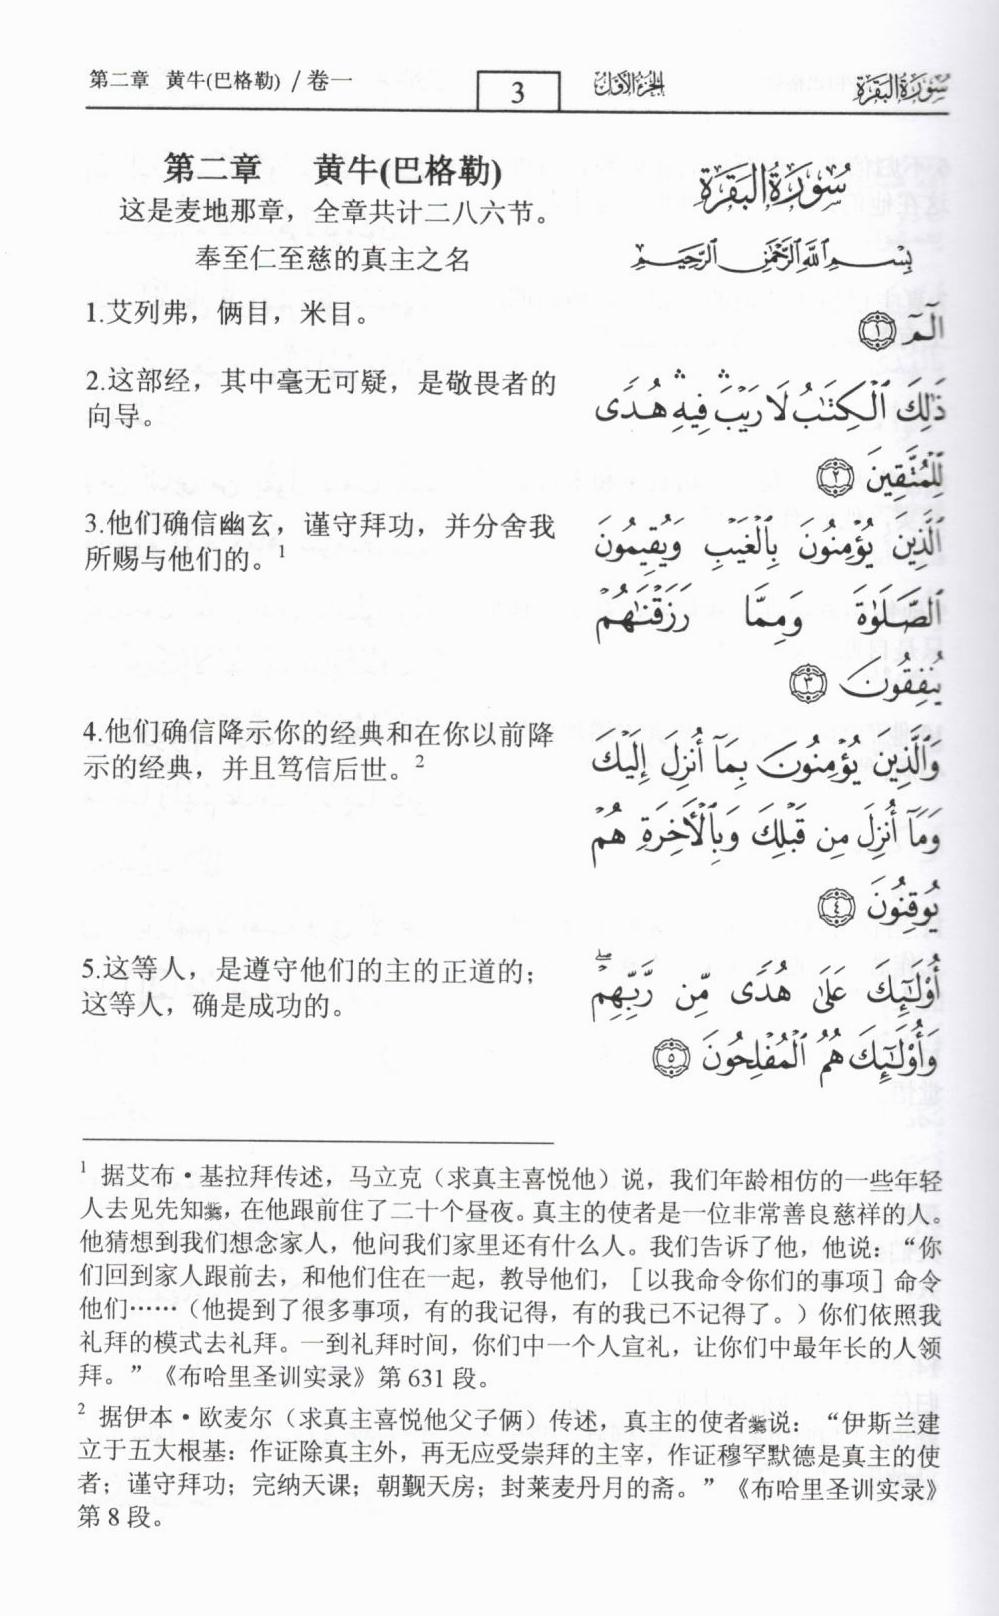 第二章 黄牛(巴格勒) / 卷一
3
الجزء الأول
سورة البقرة
第二章 黄牛(巴格勒)
سُورَةُ البَقَرَةِ
这是麦地那章，全章共计二八六节。
奉至仁至慈的真主之名
بِسْمِ ٱللَّهِ ٱلرَّحْمَٰنِ ٱلرَّحِيمِ
1.艾列弗，俩目，米目。
الٓمٓ ١
2.这部经，其中毫无可疑，是敬畏者的
向导。
ذَٰلِكَ ٱلْكِتَٰبُ لَا رَيْبَ ۛ فِيهِ ۛ هُدًى
لِّلْمُتَّقِينَ ٢
3.他们确信幽玄，谨守拜功，并分舍我
所赐与他们的。1
ٱلَّذِينَ يُؤْمِنُونَ بِٱلْغَيْبِ وَيُقِيمُونَ
ٱلصَّلَوٰةَ وَمِمَّا رَزَقْنَٰهُمْ
يُنفِقُونَ ٣
4.他们确信降示你的经典和在你以前降
示的经典，并且笃信后世。2
وَٱلَّذِينَ يُؤْمِنُونَ بِمَآ أُنزِلَ إِلَيْكَ
وَمَآ أُنزِلَ مِن قَبْلِكَ وَبِٱلْأَخِرَةِ هُمْ
يُوقِنُونَ ٤
5.这等人，是遵守他们的主的正道的；
这等人，确是成功的。
أُوْلَٰٓئِكَ عَلَىٰ هُدًى مِّن رَّبِّهِمْ ۖ
وَأُوْلَٰٓئِكَ هُمُ ٱلْمُفْلِحُونَ ٥
1 据艾布·基拉拜传述，马立克（求真主喜悦他）说，我们年龄相仿的一些年轻
人去见先知ﷺ，在他跟前住了二十个昼夜。真主的使者是一位非常善良慈祥的人。
他猜想到我们想念家人，他问我们家里还有什么人。我们告诉了他，他说：“你
们回到家人跟前去，和他们住在一起，教导他们，［以我命令你们的事项］命令
他们……（他提到了很多事项，有的我记得，有的我已不记得了。）你们依照我
礼拜的模式去礼拜。一到礼拜时间，你们中一个人宣礼，让你们中最年长的人领
拜。”《布哈里圣训实录》第 631 段。
2 据伊本·欧麦尔（求真主喜悦他父子俩）传述，真主的使者ﷺ说：“伊斯兰建
立于五大根基：作证除真主外，再无应受崇拜的主宰，作证穆罕默德是真主的使
者；谨守拜功；完纳天课；朝觐天房；封莱麦丹月的斋。”《布哈里圣训实录》
第 8 段。